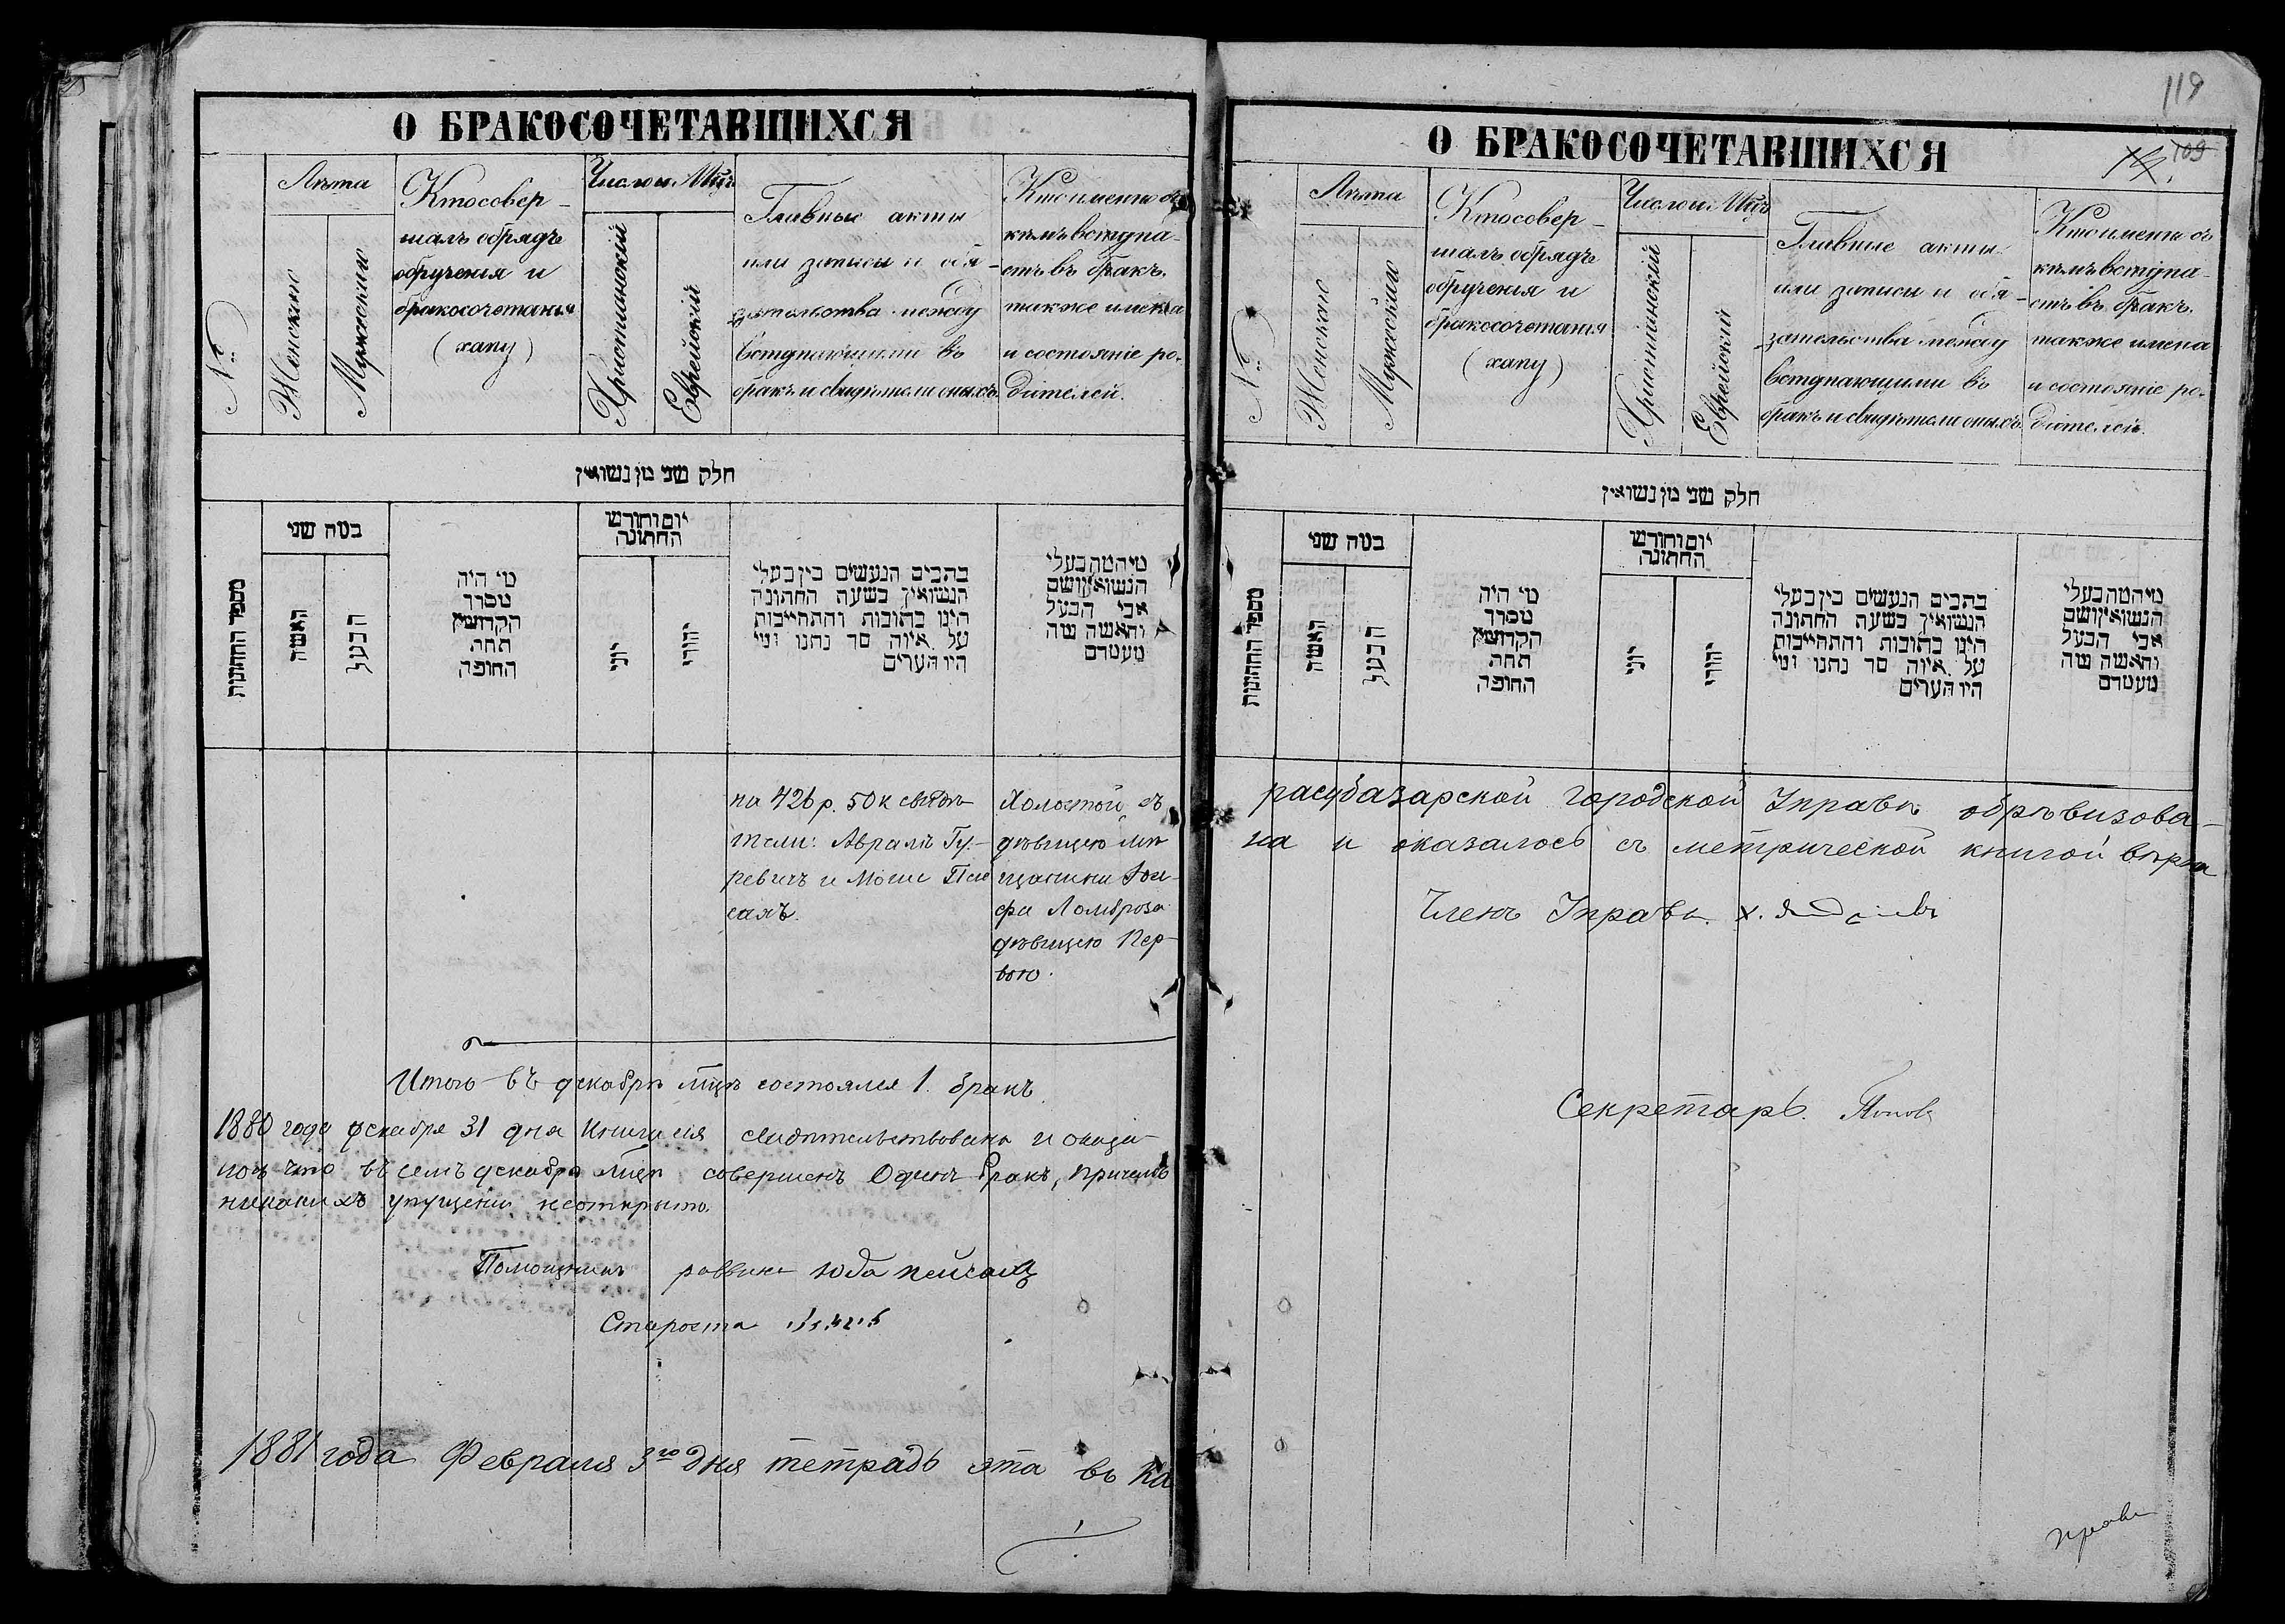 О БРАКОСОЧЕТАВШИХСЯ
№
Лѣта
Женского
Мужеского
Кто совер-
шалъ обрядъ
обрученія и
бракосочетанія
(хапу)
Число и Мцъ
Христіанскій
Еврейскій
Главные акты
или записи и обя-
зательства между
вступающими въ
бракъ и свидѣтели оныхъ
Кто именно съ
кѣмъ вступа-
етъ въ бракъ.
также имена
и состояніе ро-
дителей.
חלק שני מן נשואין
מספר החתונות
כמה שני
האשה
הבעל
מי היה
מסדר
הקדושין
תחת
החופה
יום וחודש
החתונה
יוני
יהודי
כתבים הנעשים בין בעלי
הנשואין בשעה החתונה
היינו כתובות והתחייבות
על איזה סך נתנו ומי
היו הערים
מיהמה בעלי
הנשואין ושם
אבי הבעל
והאשה מה
מעמדם
на 426 р. 50 к свидѣ-
тели: Аврамъ Гу-
ревичъ и Моше Пей
сахъ.
Холостой, съ
дѣвицею мѣ
щанини Іои-
фа Ломброзо
дѣвицею Пер-
лою.
Итого въ декабрѣ мцѣ состоялся 1. бракъ.
1880 года декабря 31 дня Книга сія свидѣтельствована и оказа-
лось что въ семъ декабрѣ мцѣ совершенъ Одинъ бракъ, причемъ
никакихъ упущеній неоткрыто.
Помощникъ раввина Юда Пейсахъ
Староста
1881 года Февраля 3го дня тетрадь эта въ Ка
119
О БРАКОСОЧЕТАВШИХСЯ
109
№
Лѣта
Женского
Мужеского
Кто совер-
шалъ обрядъ
обрученія и
бракосочетанія
(хапу)
Число и Мцъ
Христіанскій
Еврейскій
Главные акты
или записи и обя-
зательства между
вступающими въ
бракъ и свидѣтели оныхъ
Кто именно съ
кѣмъ вступа-
етъ въ бракъ.
также имена
и состояніе ро-
дителей.
חלק שני מן נשואין
מספר החתונות
כמה שני
האשה
הבעל
מי היה
מסדר
הקדושין
תחת
החופה
יום וחודש
החתונה
יוני
יהודי
כתבים הנעשים בין בעלי
הנשואין בשעה החתונה
היינו כתובות והתחייבות
על איזה סך נתנו ומי
היו הערים
מיהמה בעלי
הנשואין ושם
אבי הבעל
והאשה מה
מעמדם
расубазарской городской Управѣ обревизова-
на и оказалось съ метрической книгой вѣрна
Членъ Управы Х.
Секретарь Попов